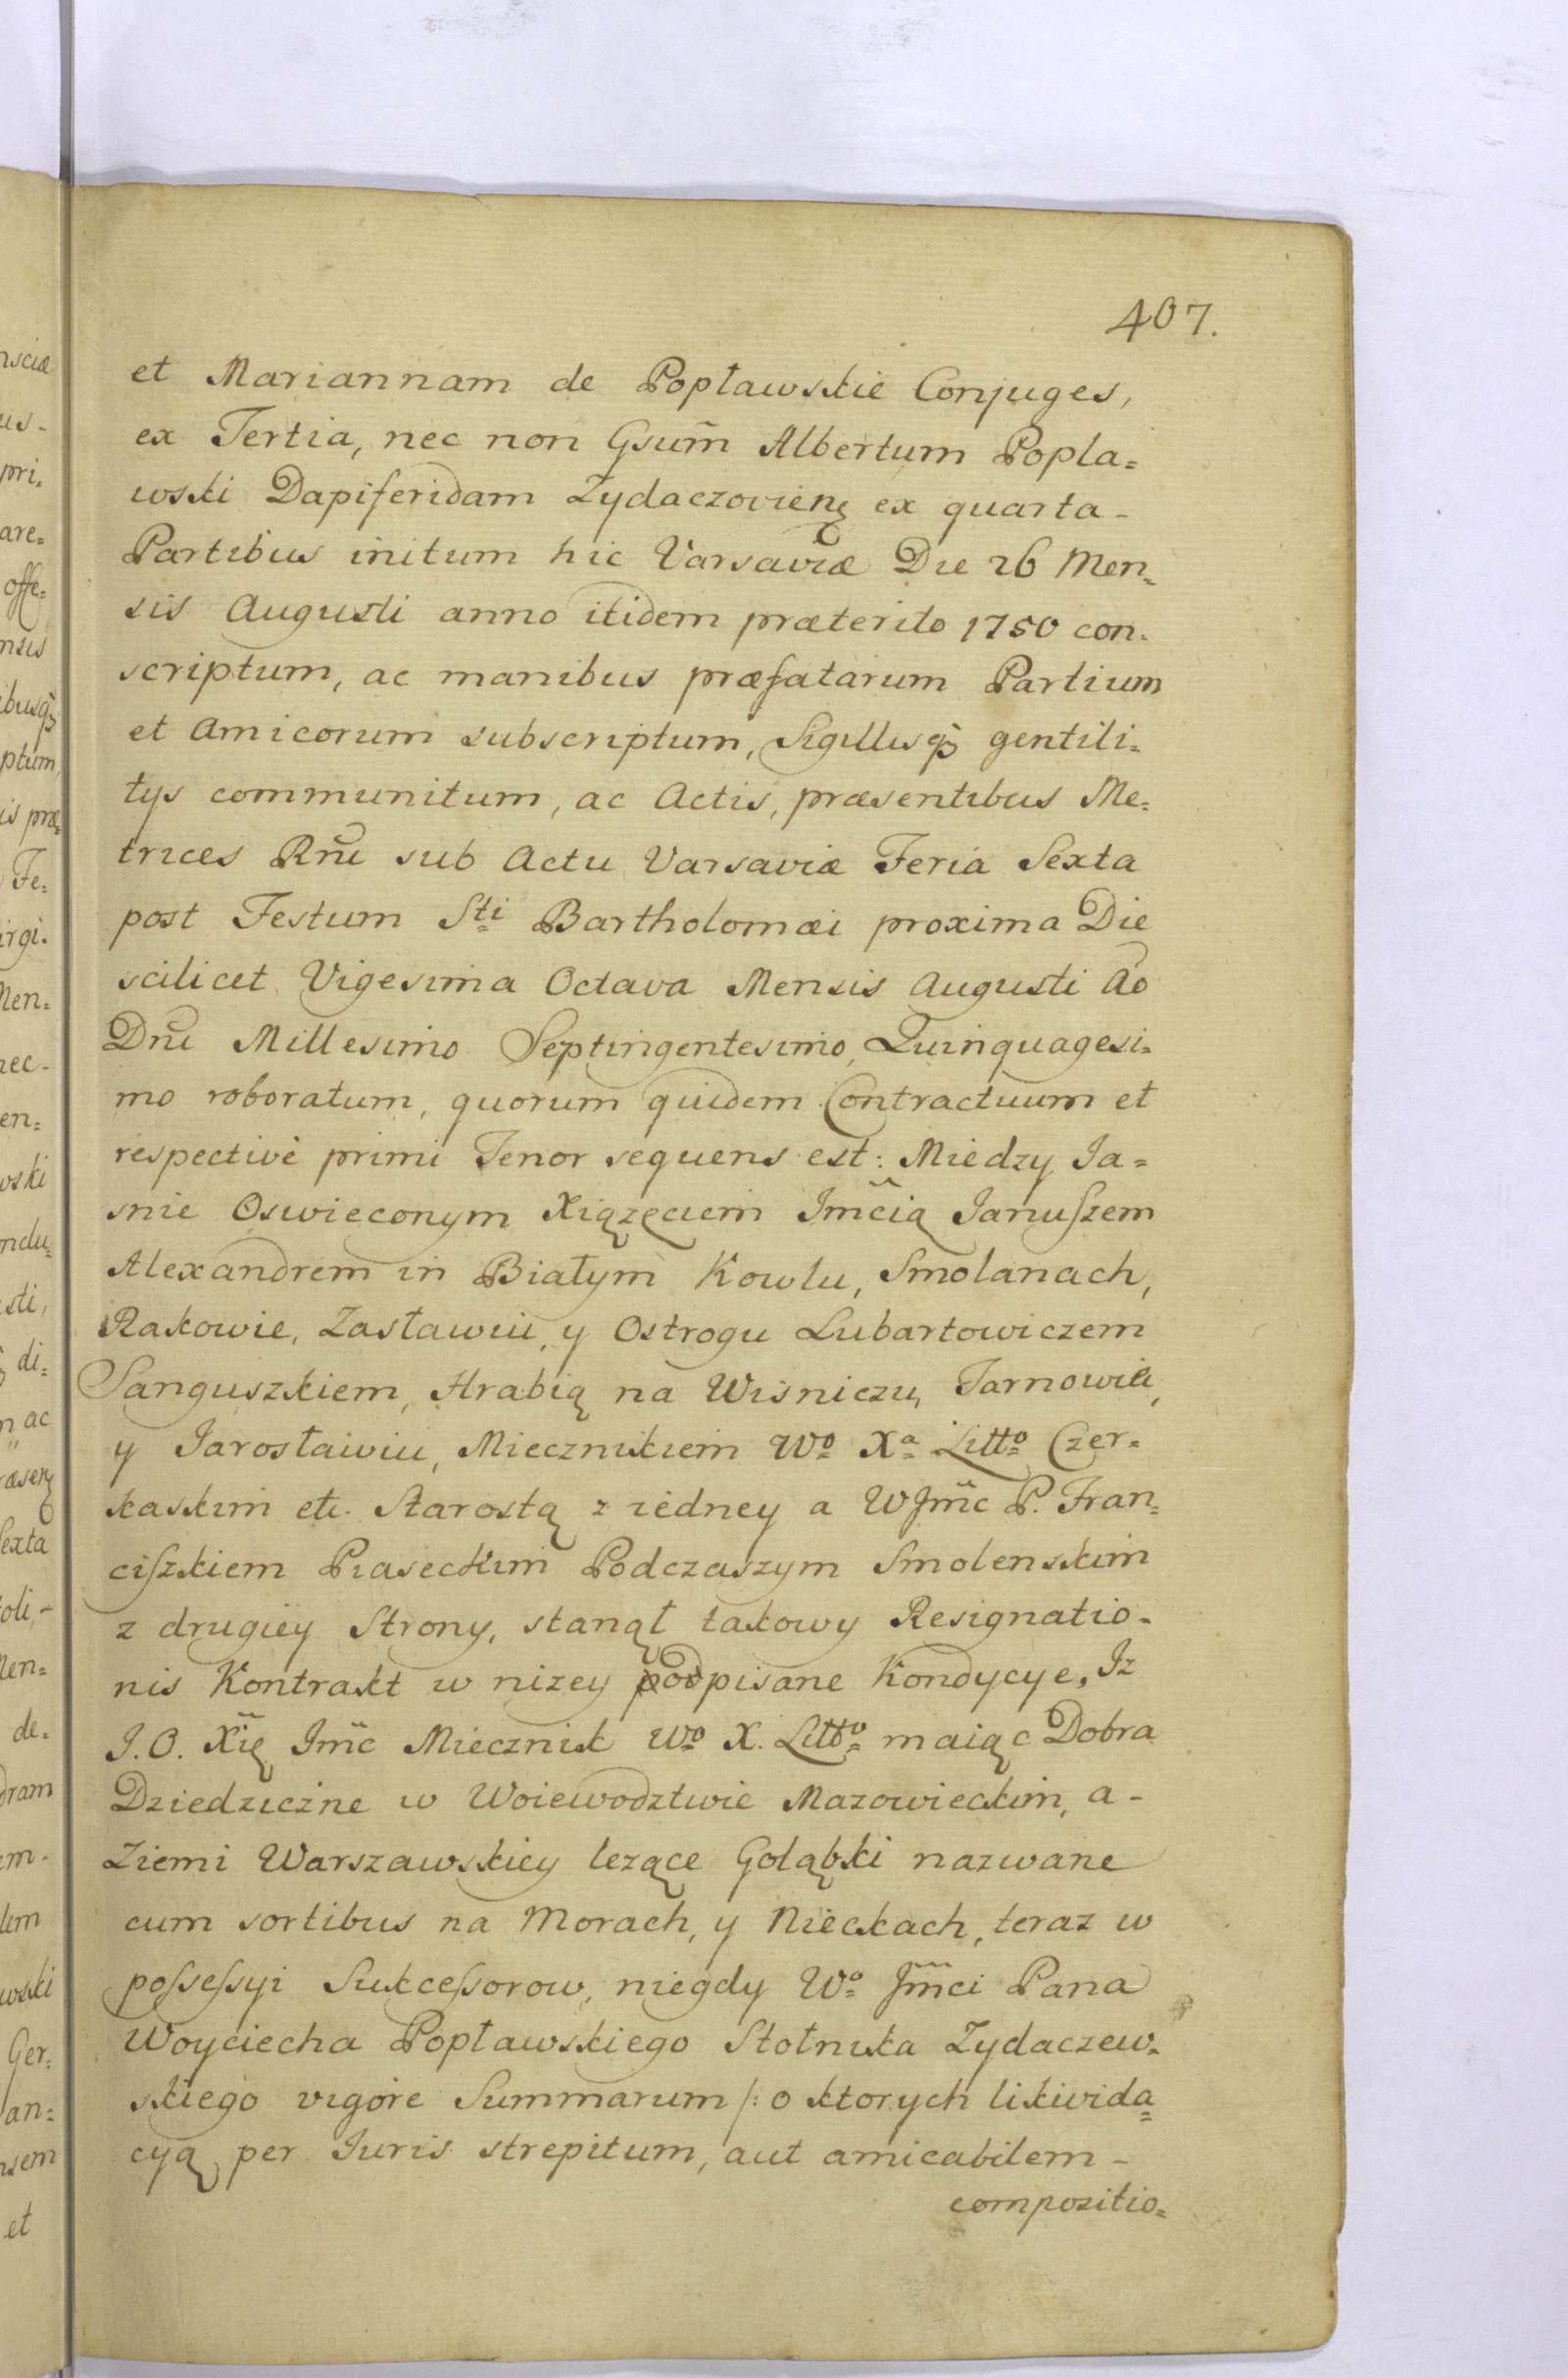 407.
et Mariannam de Popławskie Conjuges,
ex Tertia, nec non Gsum̃ Albertum Popla=
wski Dapiferidam Zydaczovienę ex quarta -
Partibus initum hic Varsaviæ Die 26 Men=
sis Augusti anno itidem præterito 1750 con=
scriptum, ac manibus præfatarum Partium
et Amicorum subscriptum, Sigillisqȝ gentili=
tys communitum, ac Actis, præsentibus Me=
trices Rñi sub Actu Varsaviæ Feria Sexta
post Festum Sti Bartholomæi proxima Die
scilicet Vigesima Octava Mensis Augusti Aõ
Dñi Millesimo Septingentesimo, Quinquagesi=
mo roboratum, quorum quidem Contractuum et
respectivè primi Tenor sequens est: Miedzy Ja=
snie Oswieconym Xiązęciem Jmcią Januszem
Alexandrem in Białym Kowlu, Smolanach,
Rakowie, Zasławiu, y Ostrogu Lubartowiczem
Sanguszkiem, Hrabią na Wiśniczu, Tarnowie,
y Jarosławiu, Miecznikiem Wo Xa Litto Czer=
kaskim etc. Starostą z iedney a WJmc P. Fran=
ciszkiem Piaseckim Podczaszym Smolenskim
z drugiey Strony, stanął takowy Resignatio=
nis Kontrakt w nizey podpisane Kondycye, Iz
J.O. Xię Jmc Miecznik Wo X. Litto maiąc Dobra
Dziedziczne w Woiewodztwie Mazowieckim, a -
Ziemi Warszawskiey lezące Gołąbki nazwane
cum sortibus na Morach, y Nieckach, teraz w
possessyi Sukcessorow, niegdy Wo Jmci Pana
Woyciecha Popławskiego Stolnika Zydaczew=
skiego vigore Summarum /: o ktorych likwida=
cyą per Iuris strepitum, aut amicabilem -
compozitio=
nsciæ
us-
pri=
are=
offe=
nsis
ibusqȝ
ptum,
is præ=
Fe=
irgi=
Men=
nec-
en=
wski
ndu=
sti,
di=
m ac
Sexta
oli,-
Men=
de=
dram
em-
lem
wski
Ger=
an=
nsem
et